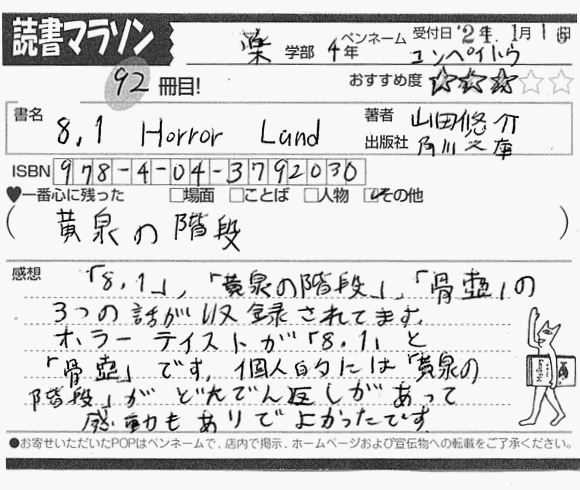 読書マラソン
薬 学部 4年
ペンネーム コンペイトウ
受付日 '24年 1月 1日
92 冊目!
おすすめ度 ★★★☆☆
書名 8.1 Horror Land
著者 山田悠介
出版社 角川文庫
ISBN 978-4-04-3792030
♥一番心に残った □場面 □ことば □人物 ☑その他
(黄泉の階段)
感想 「8.1」,「黄泉の階段」,「骨壺」の
3つの話が収録されてます。
ホラーテイストが「8.1」と
「骨壺」です。個人的には「黄泉の
階段」がどんでん返しがあって
感動もありでよかったです
●お寄せいただいたPOPはペンネームで、店内で掲示、ホームページおよび宣伝物への転載をご了承ください。